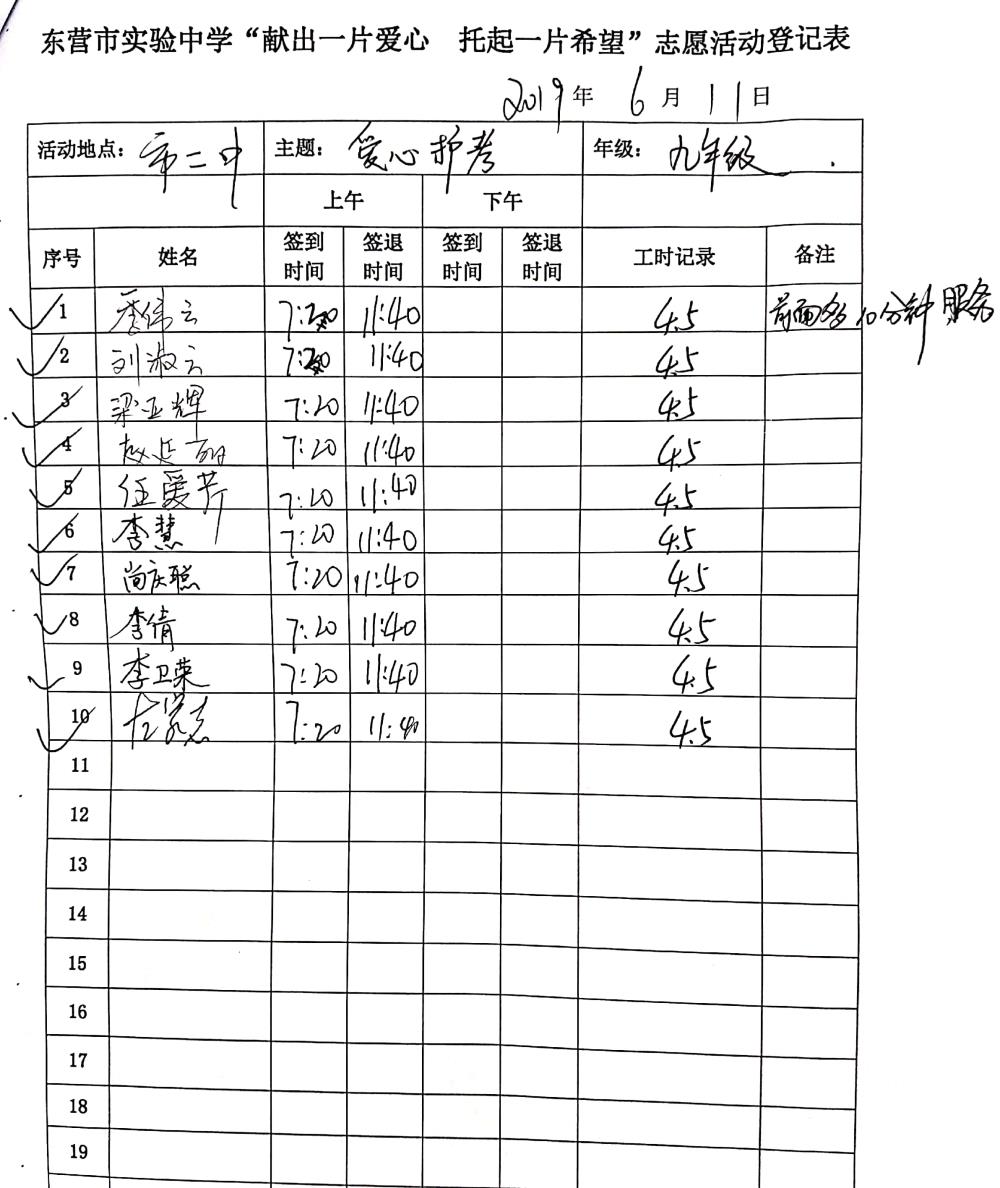 东营市实验中学“献出一片爱心 托起一片希望”志愿活动登记表
2019年 6月 11日
活动地点: 市二中 主题: 爱心护考 年级: 九年级
上午 下午
序号 姓名 签到时间 签退时间 签到时间 签退时间 工时记录 备注
1 季伟云 7:20 11:40 4.5 前面多10分钟服务
2 刘淑云 7:20 11:40 4.5
3 梁亚辉 7:20 11:40 4.5
4 赵延 7:20 11:40 4.5
5 任爱芹 7:20 11:40 4.5
6 李慧 7:20 11:40 4.5
7 尚庆聪 7:20 11:40 4.5
8 李倩 7:20 11:40 4.5
9 李卫荣 7:20 11:40 4.5
10 7:20 11:40 4.5
11
12
13
14
15
16
17
18
19